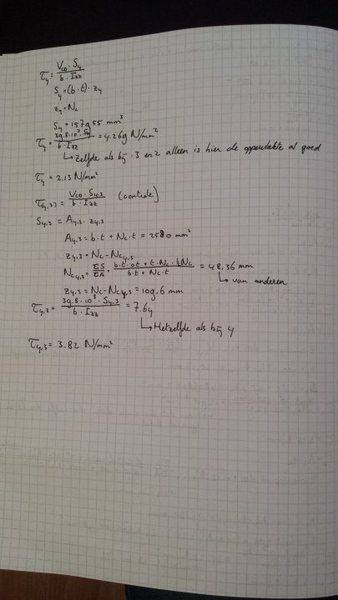 τ₄ = V_co · S₄ / b · I_zz
S₄ = (b · t) · z₄
z₄ = N_c
S₄ = 157955 mm³
τ₄ = 39.8·10³ · S₄ / b · I_zz = 4.269 N/mm²
↳ Zelfde als bij .3 en 2 alleen is hier de oppervlakte al goed
τ₄ = 2.13 N/mm²
τ(4,3) = V_co · S₄,₃ / b · I_zz (controle)
S₄,₃ = A₄,₃ · z₄,₃
A₄,₃ = b·t + N_c·t = 2580 mm²
z₄,₃ = N_c - N_c₄,₃
N_c₄,₃ = ΣS / ΣA = b·t·0t + t·N_c·½N_c / b·t + N_c·t = 48,36 mm
↳ van anderen
z₄,₃ = N_c - N_c₄,₃ = 109.6 mm
τ₄,₃ = 39.8·10³ · S₄,₃ / b · I_zz = 7.64
↳ Hetzelfde als bij 4
τ₄,₃ = 3.82 N/mm²